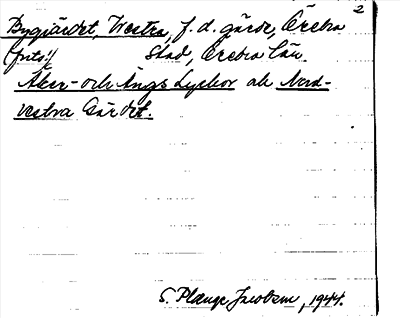 2
Bygiärdet, Westra, f. d. gärde, Örebro
(prits!) Stad, Örebro län.
Åker- och Ängs Lyckor ak Nord-
vestra Gärdet.
S. Plange Jacobson, 1944.